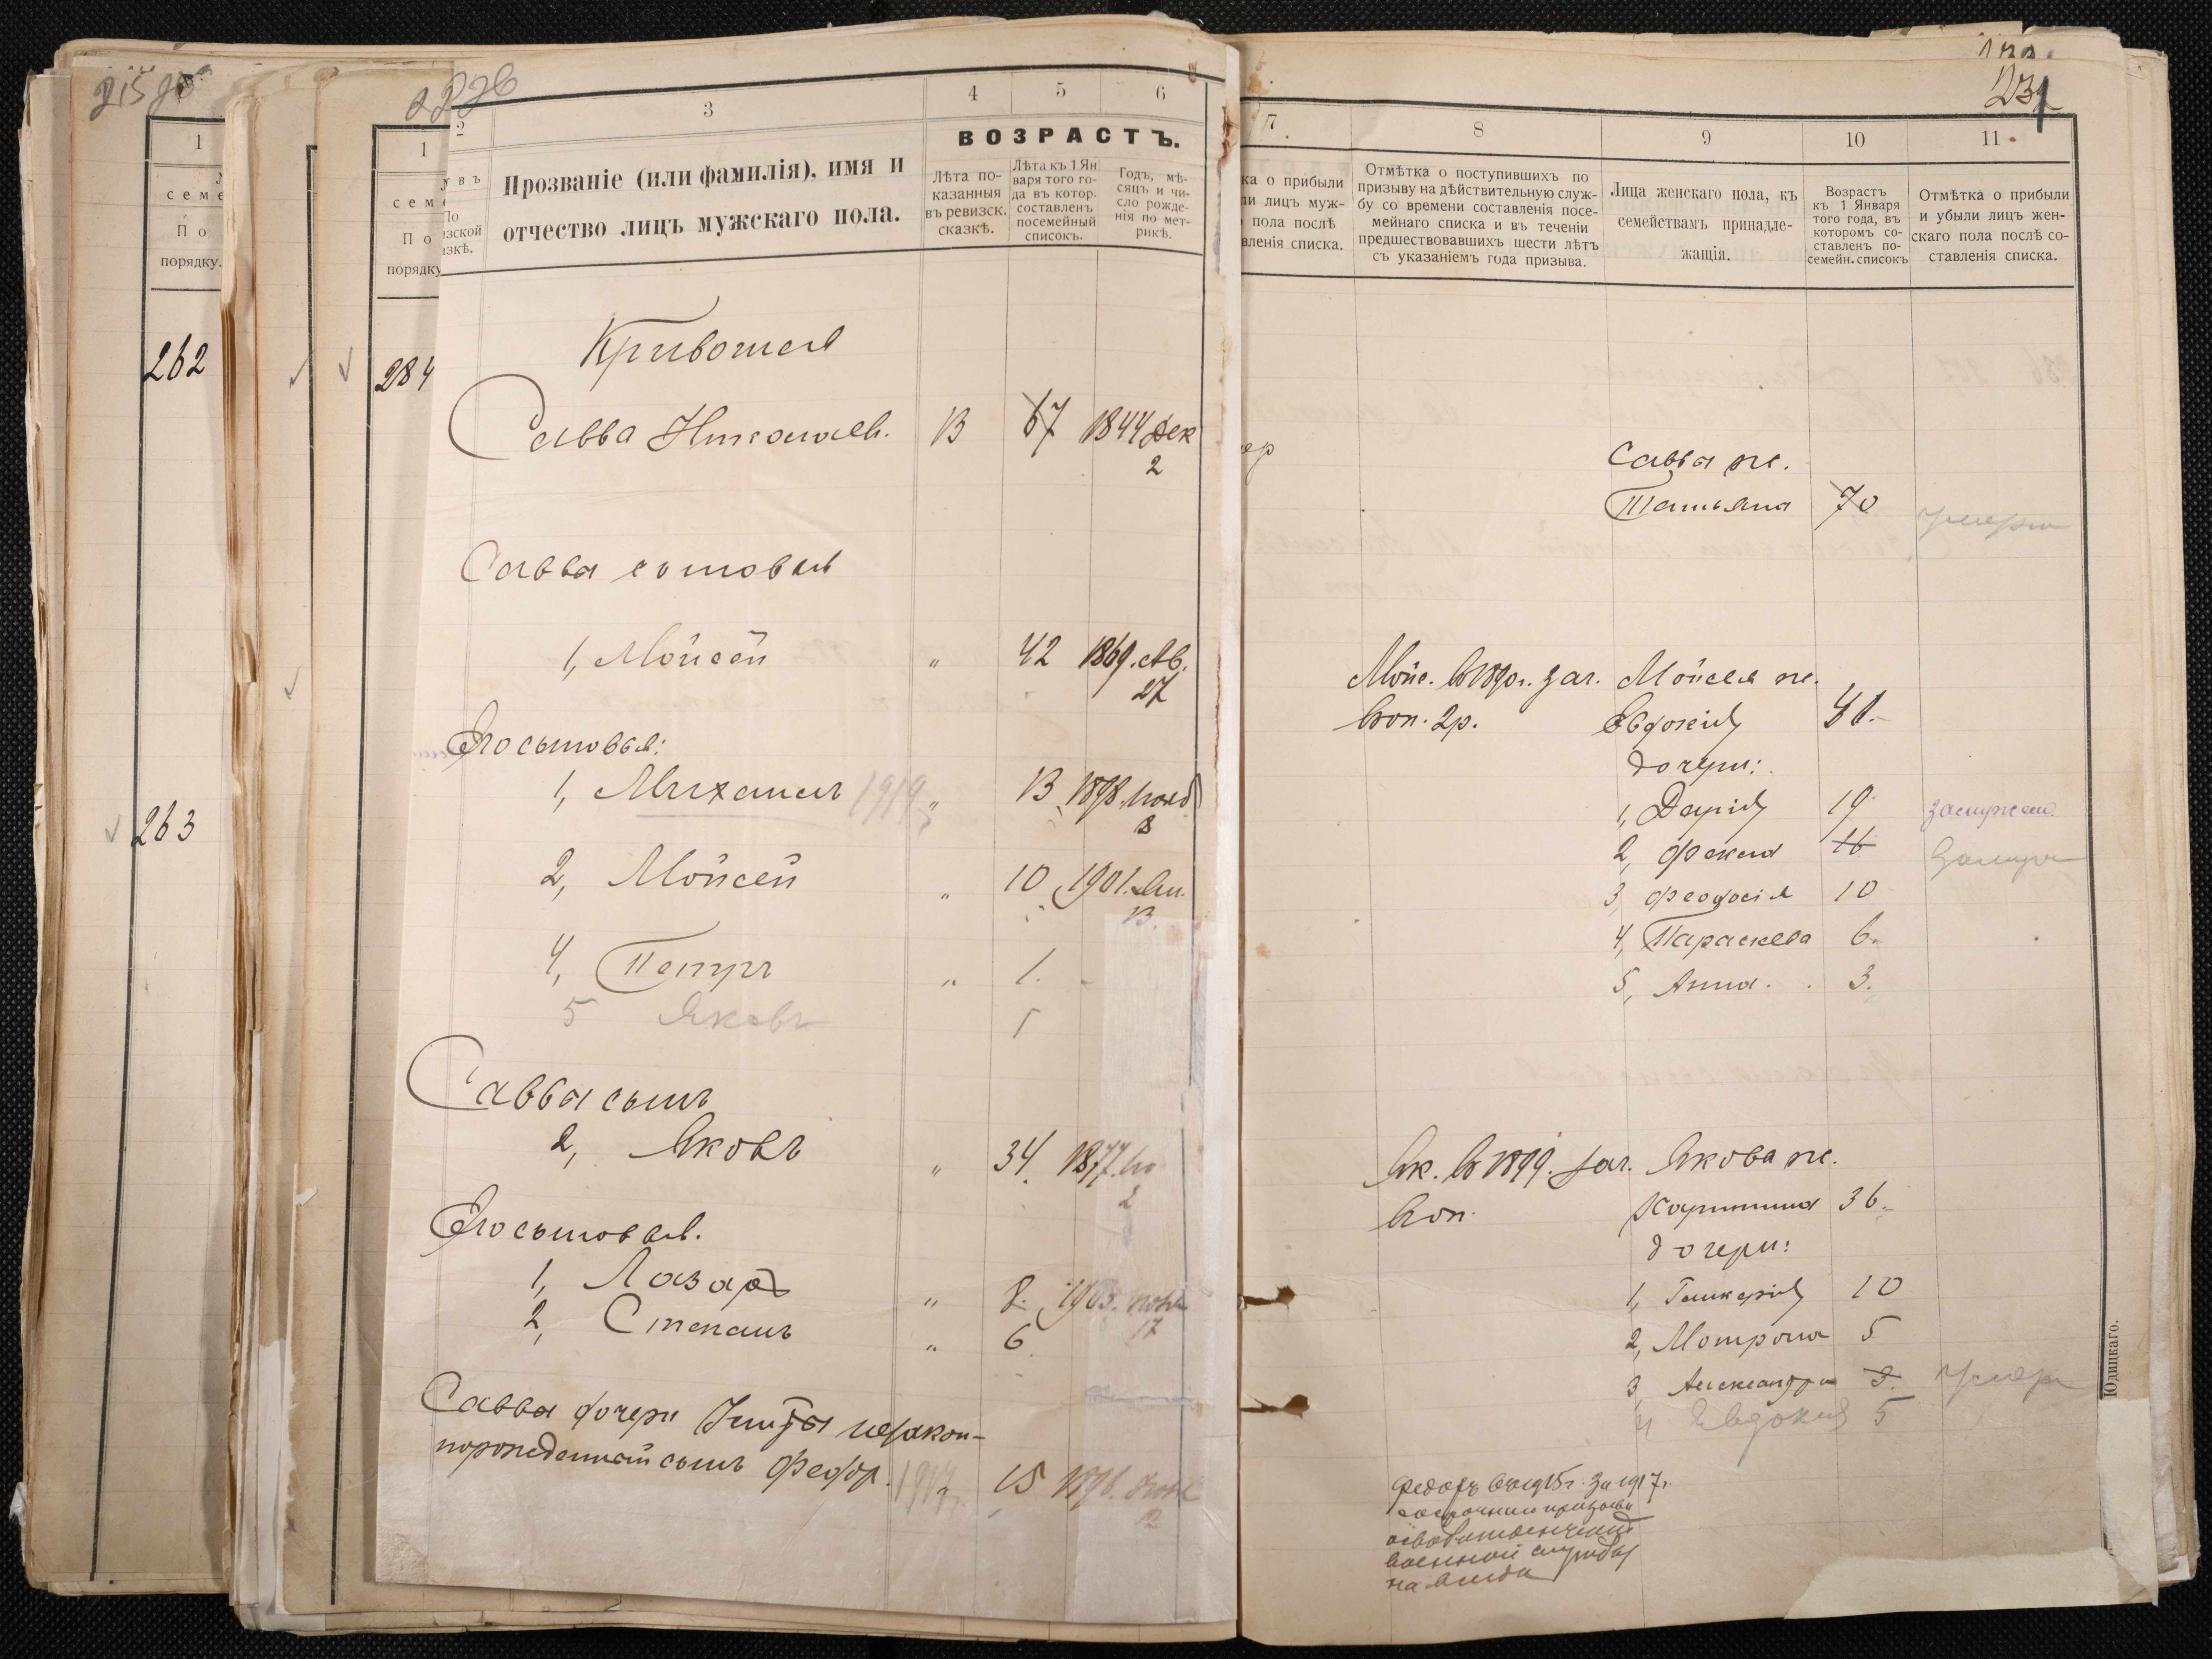 1
семе
По
порядку.
262
263
1
семе
По
порядку
284
2
въ
По
3
4
5
6
ВОЗРАСТЪ.
Прозваніе (или фамилія), имя и
отчество лицъ мужскаго пола.
Лѣта по-
казанныя
въ ревизск.
сказкѣ.
Лѣта къ 1 Ян
варя того го-
да въ котор.
составленъ
посемейный
списокъ.
Годъ, мѣ-
сяцъ и чи-
сло рожде-
нія по мет-
рикѣ.
Кривошея
Савва Николаев. 13 67 1844 Дек
2
Савва сыновья
1, Мойсей " 42 1869. Ав.
27
Его сыновья:
1, Михаилъ 1919 " 13 1898. Нояб
8
2, Мойсей " 10 1901. Ян.
13.
4, Петръ " 1.
5 Яковъ 1
Савва сынъ
2, Яковъ " 34. 1877. Но
2
Его сыновья.
1, Лазарь " 8. 1903.
17
2, Степанъ " 6
Савва дочери незакон-
норожденный сынъ Федор. 15
7.
8
9
10
11
ка о прибыли
ли лицъ муж-
пола послѣ
вленія списка.
Отмѣтка о поступившихъ по
призыву на дѣйствительную служ-
бу со времени составленія посе-
мейнаго списка и въ теченіи
предшествовавшихъ шести лѣтъ
съ указаніемъ года призыва.
Лица женскаго пола, къ
семействамъ принадле-
жащія.
Возрастъ
къ 1 Января
того года, въ
которомъ со-
ставленъ по-
семейн. списокъ
Отмѣтка о прибыли
и убыли лицъ жен-
скаго пола послѣ со-
ставленія списка.
Савва ж.
Татьяна 70 умерла
Мойс. в 1890 г. зач. Мойсея ж.
в оп. 2 р. Евдокія 41.
дочери:
1, Дарія 19 замужем
2, Фекла 16 замуж
3, Феодосія 10
4, Параскева 6.
5, Анна. 3.
Як. в 1899. зач. Якова ж.
в оп. Харитина 36.
дочери:
1, Гликерія 10
2, Мотрона 5
3 Александра 3. умер
4 Явдокія 5
Федоръ в 1915 г. за 1917 г.
военной службы
на всегда
Юдицкаго.